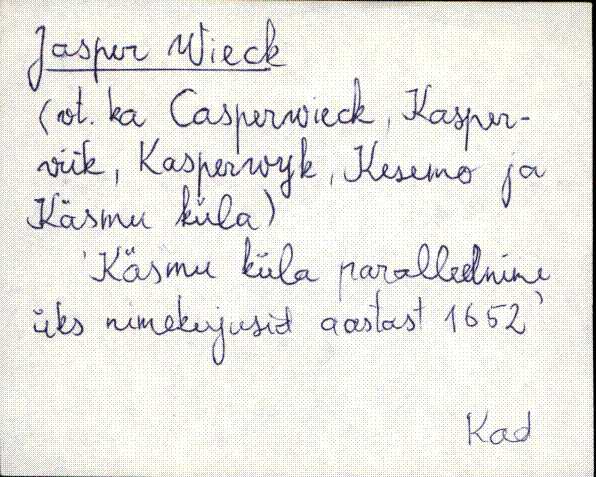 Jasper Wieck
(vt. ka Casperwieck, Kasper-
viik, Kasperwyk, Kesemo ja
Käsmu küla)
'Käsmu küla paralleelnime
üks nimekujusid aastast 1652'
Kad